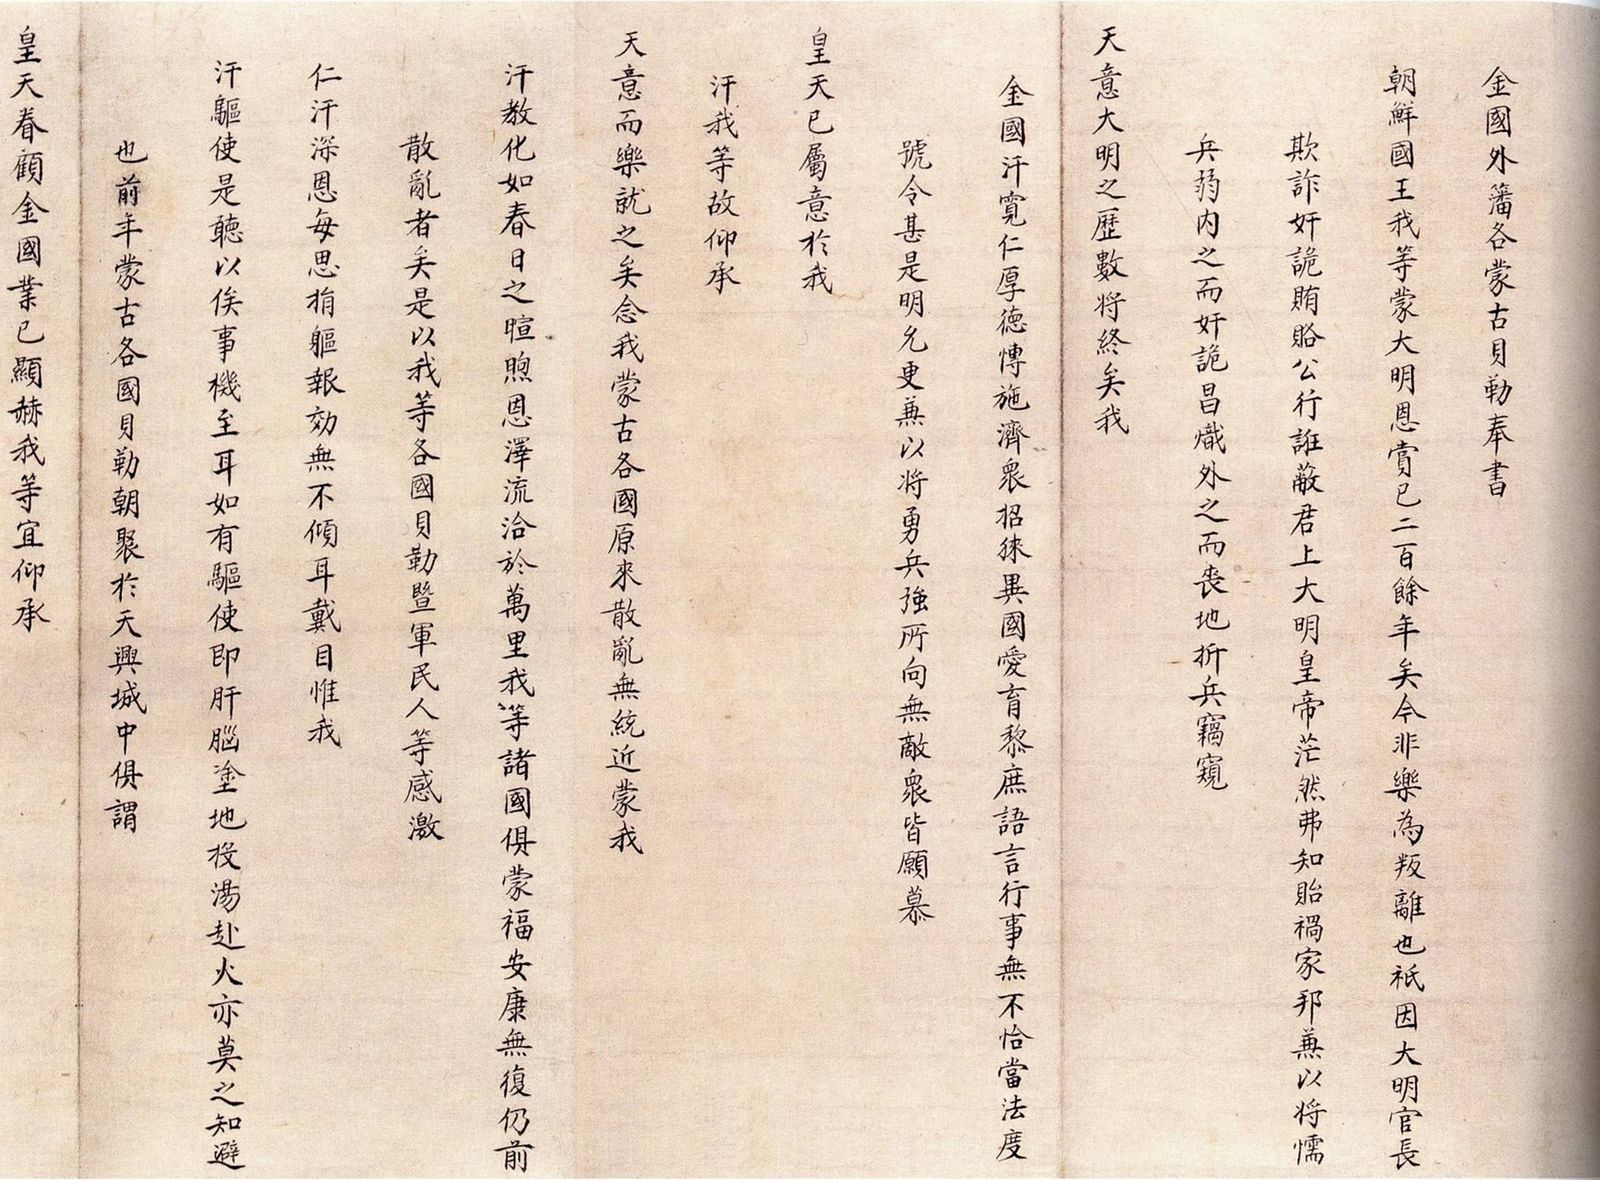 金國外藩各蒙古貝勒奉書
朝鮮國王我等蒙大明恩賞已二百餘年矣今非樂為叛離也祇因大明官長
欺詐奸詭賄賂公行誑蔽君上大明皇帝茫然弗知貽禍家邦兼以将懦
兵弱内之而奸詭昌熾外之而喪地折兵竊窺
天意大明之歷數将終矣我
金國汗寬仁厚德愽施濟衆招徠異國愛育黎庶語言行事無不恰當法度
號令甚是明允更兼以将勇兵強所向無敵衆皆願慕
皇天已屬意於我
汗我等故仰承
天意而樂就之矣念我蒙古各國原來散亂無統近蒙我
汗教化如春日之暄煦恩澤流洽於萬里我等諸國俱蒙福安康無復仍前
散亂者矣是以我等各國貝勒曁軍民人等感激
仁汗深恩每思捐軀報効無不傾耳戴目惟我
汗驅使是聽以俟事機至耳如有驅使即肝腦塗地投湯赴火亦莫之知避
也前年蒙古各國貝勒朝聚於天興城中俱謂
皇天眷顧金國業已顯赫我等宜仰承